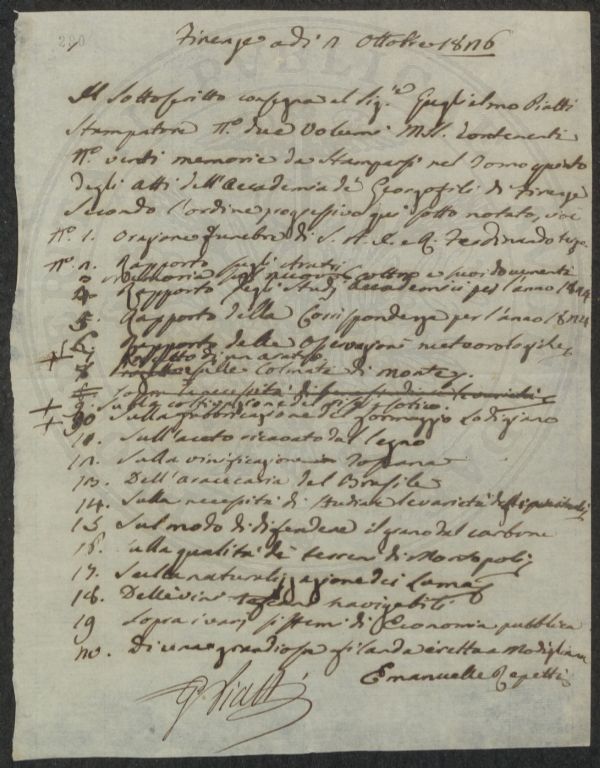 Firenze adi 2 Ottobre 1826
Il Sottoscritto consegna al Sig.re Guglielmo Piatti
Stampatore N.o due Volumi MSS. Contenenti
N.o venti memorie da Stamparsi nel Tomo quinto
degli atti dell'Accademia de Georgofili di Firenze
Secondo l'ordine progressivo qui sotto notato, cioè
N.o 1. Orazione funebre di S. A. I. e R. Ferdinando terzo
N.o 2. Rapporto sugli Aratri
3 Memoria e suoi documenti
4 Rapporto degli Studj Accademici per l'anno 1824
5. Rapporto della Corrispondenza per l'anno 1824
6 Rapporto delle Osservazioni meteorologiche
7 di un aratro
8 sulle Colmate di
9. Sulla
10 Sulla fabbricazione del formaggio Lodigiano
11. Sull'aceto ricavato dal legno
12. Sulla vinificazione in Toscana
13. Dell'araucaria del Brasile
14. Sulla necessità di Studiare le varietà
15 Sul modo di difendere il grano dal carbone
16. Sulla qualità de terreni di Montopoli
17. Sulla naturalizzazione dei Lama
18. Delle vie navigabili
19 Sopra i varj sistemi di Economia pubblica
20. Di una grandiosa filanda eretta a Modigliana
Emanuelle Repetti
G. Piatti